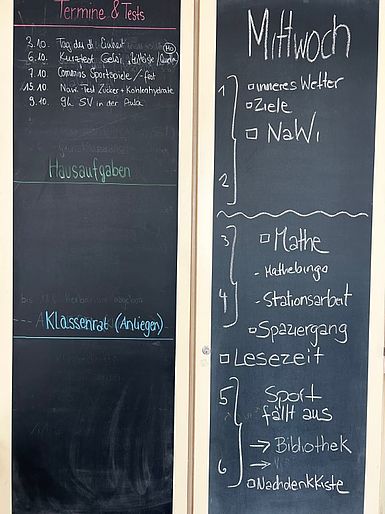 Termine & Tests
3.10. Tag der dt. Einheit
6.10. Kurztest
7.10. Sportspiele /-fest
15.10 Nawi Test Zucker + Kohlenhydrate
9.10. gk. SV in der Aula
Hausaufgaben
Klassenrat (Anliegen)
Mittwoch
1
inneres Wetter
Ziele
NaWi
2
3
Mathe
- Mathebingo
4
- Stationsarbeit
Spaziergang
Lesezeit
5
Sport
fällt aus
→ Bibliothek
6
→
Nachdenkkiste